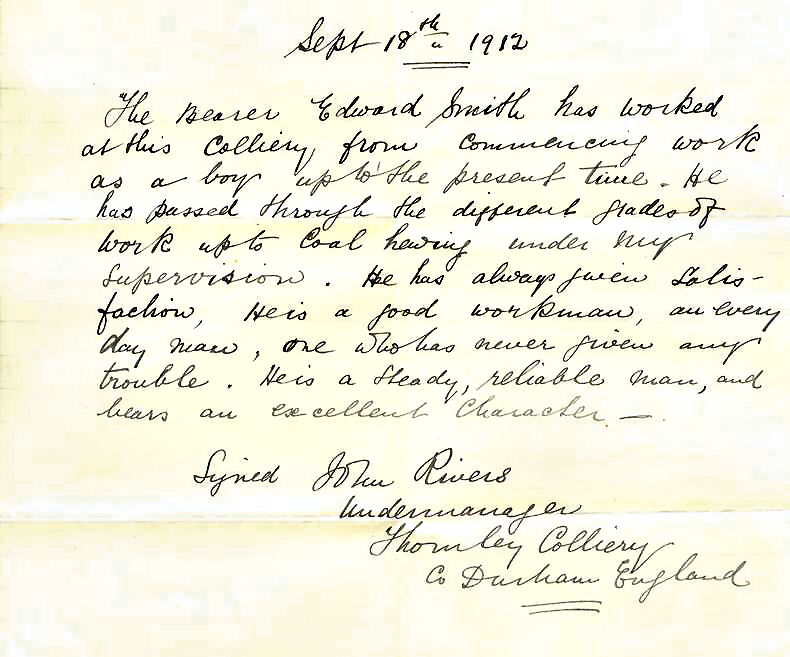 Sept 18th 1912
The Bearer Edward Smith has worked
at this Colliery, from commencing work
as a boy up to the present time. He
has passed through the different grades of
work up to Coal hewing under my
supervision. He has always given satis-
faction, He is a good workman, an every
day man, one who has never given any
trouble. He is a steady, reliable man, and
bears an excellent character. —
Signed John Rivers
Undermanager
Thornley Colliery
Co Durham England